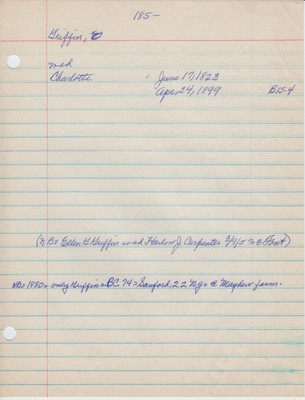 185-
Griffin, O
md
Charlotte = June 17, 1823
Apr. 24, 1899 B15-4
(N.B. Ellen G. Griffin Harlow J. Carpenter
NB. 1880 only Griffin = Sanford, 22 NY @ Mayhew farm.